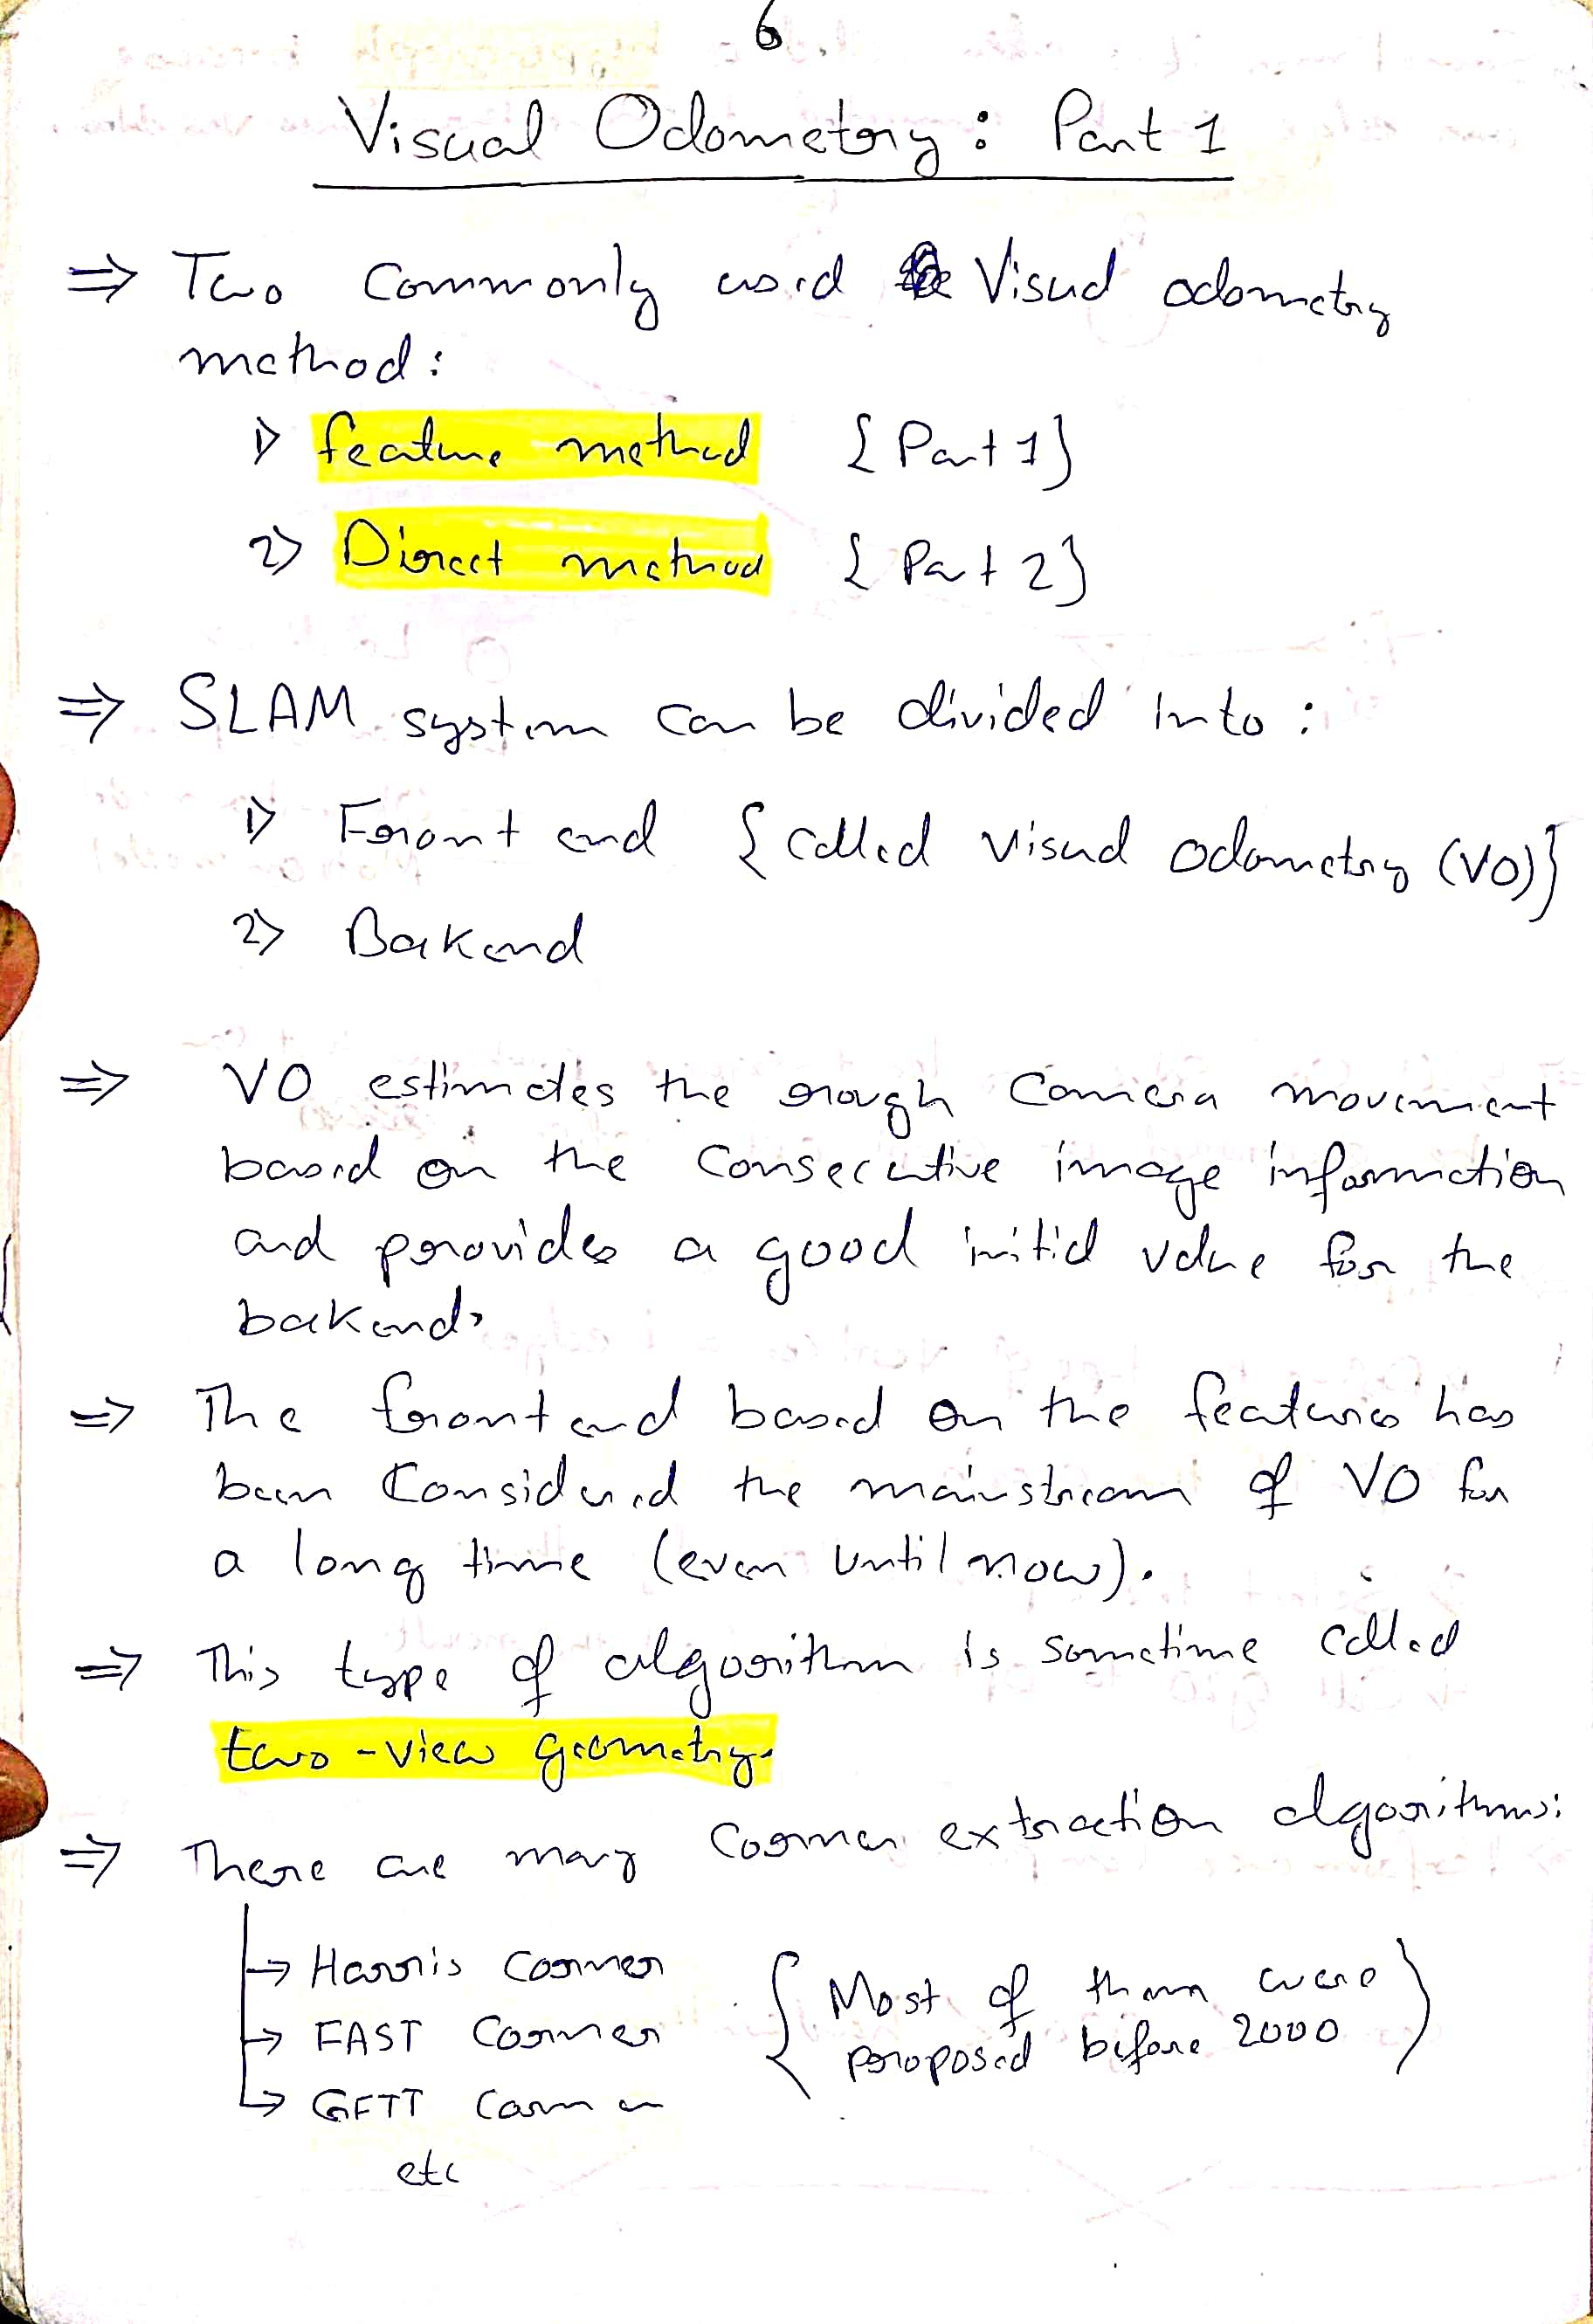 6
Visual Odometry: Part 1
⇒ Two commonly used Visual odometry
method:
1) feature method {Part 1}
2) Direct method {Part 2}
⇒ SLAM system can be divided into:
1) Front end {called visual odometry (VO)}
2) Backend
⇒ VO estimates the rough camera movement
based on the consecutive image information
and provides a good initial value for the
backend.
⇒ The frontend based on the features has
been considered the mainstream of VO for
a long time (even until now).
⇒ This type of algorithm is sometime called
two-view geometry.
⇒ There are many corner extraction algorithms:
→ Harris corner {Most of them were
→ FAST corner proposed before 2000}
→ GFTT corner
etc